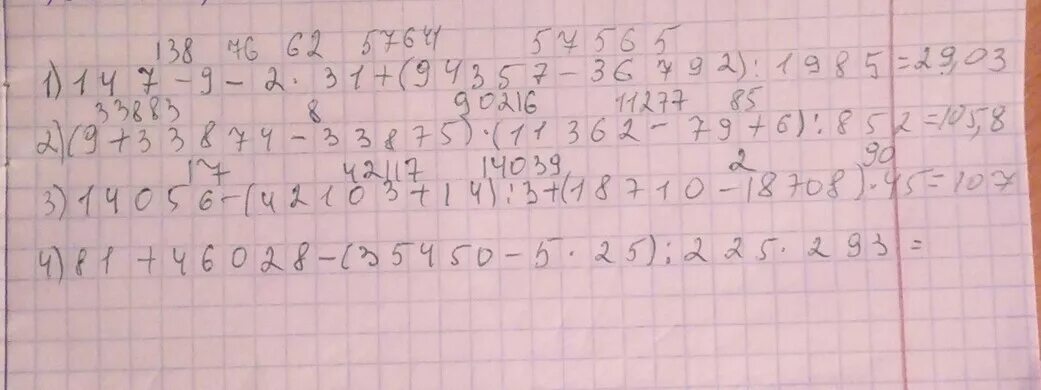 138 76 62 57641 57565
1) 147 - 9 - 2 · 31 + (94357 - 36792) : 1985 = 29,03
33883 8 90216 11277 85
2) (9 + 33874 - 33875) · (11362 - 79 + 6) : 852 = 105,8
17 42117 14039 2 90
3) 14056 - (42103 + 14) : 3 + (18710 - 18708) · 45 = 107
4) 81 + 46028 - (35450 - 5 · 25) : 225 · 293 =